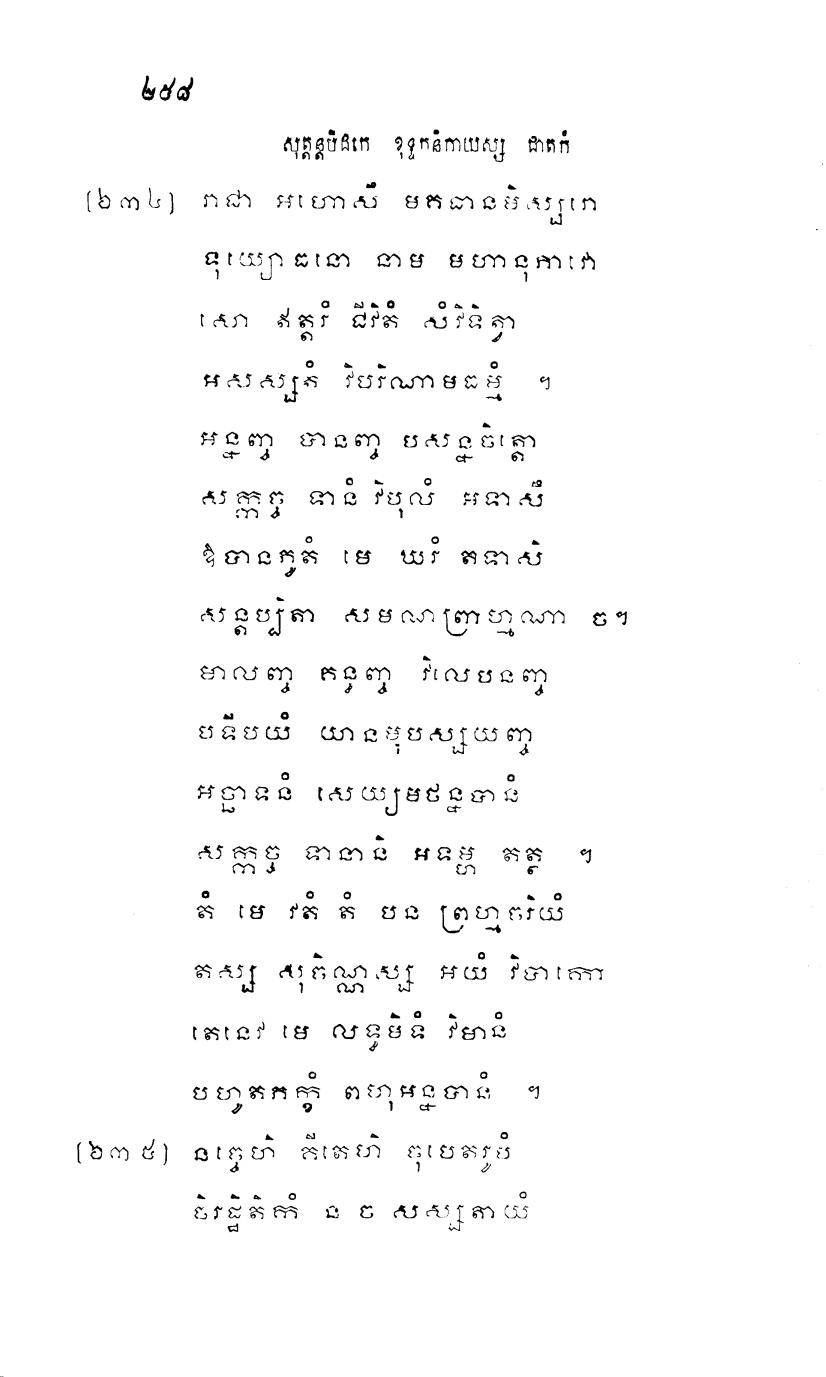 ២៥៨
សុត្តន្តបិដកេ ខុទ្ទកនិកាយស្ស ជាតកំ
(២៣៤) រាជា អហោសឹ មគធានមិស្សរោ
ទុយ្យោធនោ នាម មហានុភាវោ
សោ ឥត្តរំ ជីវិតំ សំវិទិត្វា
អសស្សតំ វិបរិណាមធម្មំ ។
អន្នញ្ច បានញ្ច បសន្នចិត្តោ
សក្កច្ច ទានំ វិបុលំ អទាសឹ
ឱបានភូតំ មេ ឃរំ តទាសិ
សន្តប្បិតា សមណព្រាហ្មណា ច។
មាលញ្ច គន្ធញ្ច វិលេបនញ្ច
បទីបយំ យានមុបស្សយញ្ច
អច្ឆាទនំ សេយ្យមថន្នបានំ
សក្កច្ច ទានានិ អទម្ហ តត្ថ ។
តំ មេ វតំ តំ បន ព្រហ្មចរិយំ
តស្ស សុចិណ្ណស្ស អយំ វិបាកោ
តេនេវ មេ លទ្ធមិទំ វិមានំ
បហូតភក្ខំ ពហុអន្នបានំ ។
(២៣៥) នច្ចេហិ គីតេហិ ចុបេតរូបំ
ចិរដ្ឋិតិកំ ន ច សស្សតាយំ